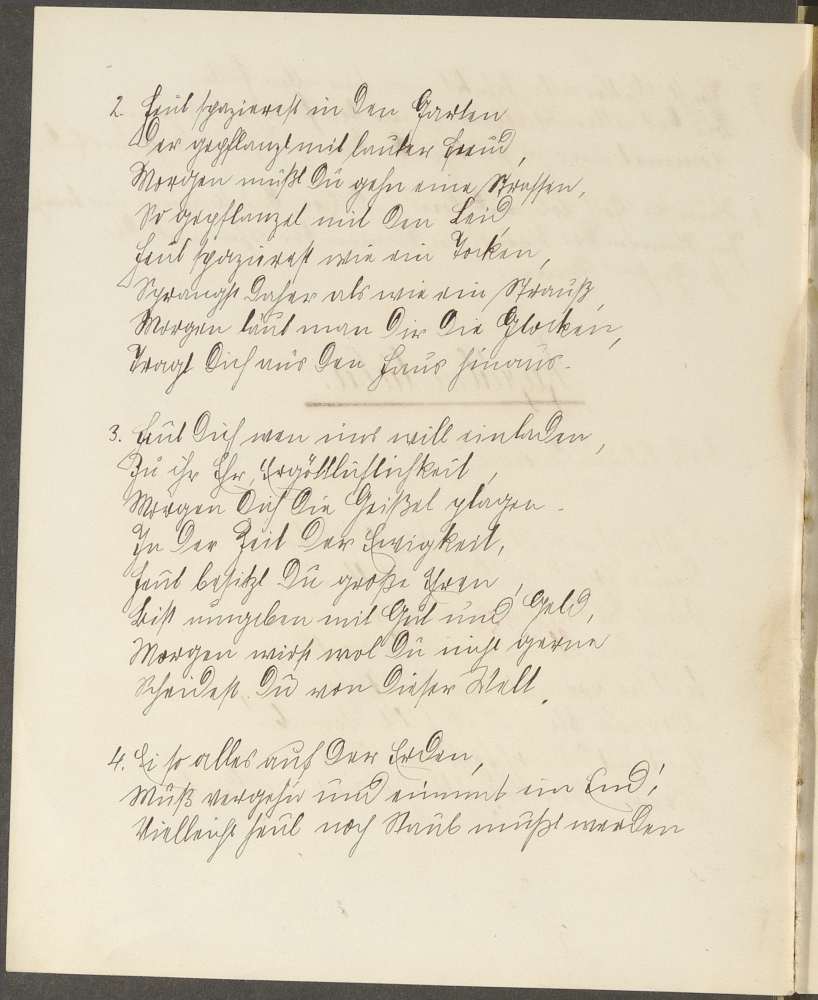 2. Heut spazierest in den Garten
Der gepflanzt mit lauter Freud,
Morgen mußt Du gehn eine Strassen,
So gepflanzet mit den Leid,
Heut spazierest wie ein Docken,
Sprangst daher als wie ein Strauß,
Morgen läut man Dir die Glocken,
Tragt Dich aus den Haus hinaus.
3. Heut Dich wen uns will einladen,
Zu ihr Ehr, Ergöttlichlichkeit,
Morgen Dich die Geißel plagen.
In der Zeit der Ewigkeit,
Heut besitzt Du große Ehren,
Bist umgeben mit Gut und Geld,
Morgen wirst wol Du nicht gerne
Scheidest Du von dieser Welt.
4. Ei so alles auf der Erden,
Muß vergehn und nimmt ein End!
Vielleicht heut noch Staub mußt werden